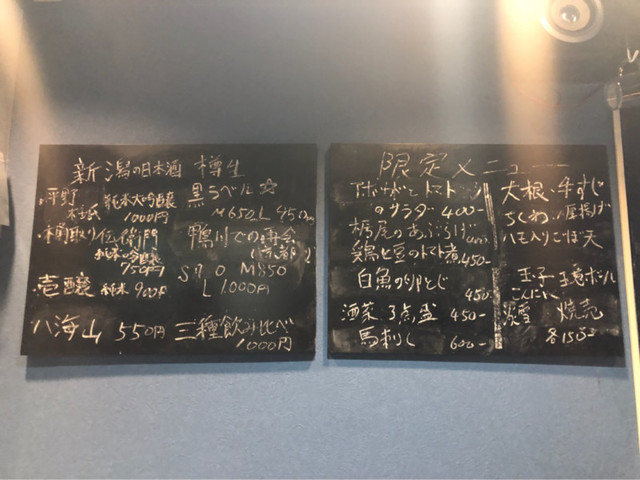 新潟の日本酒
平野
純米大吟醸
1000円
伝衛門
純米吟醸
750円
壱醸 純米 900円
八海山 550円
樽生
黒ラベル☆
M650 L 450円
鴨川での再会
(京都)
S790 M850
L 1000円
三種飲み比べ
1000円
限定メニュー
アボカドとトマト
のサラダ 400-
栃尾のあぶらげ
鶏と豆のトマト煮 450-
白魚の卵とじ
450-
酒菜3点盛 450-
馬刺し 600-
大根・牛すじ
ちくわ・厚揚げ
ハモ入りごぼ天
玉子
こんにゃく
焼売
各150-